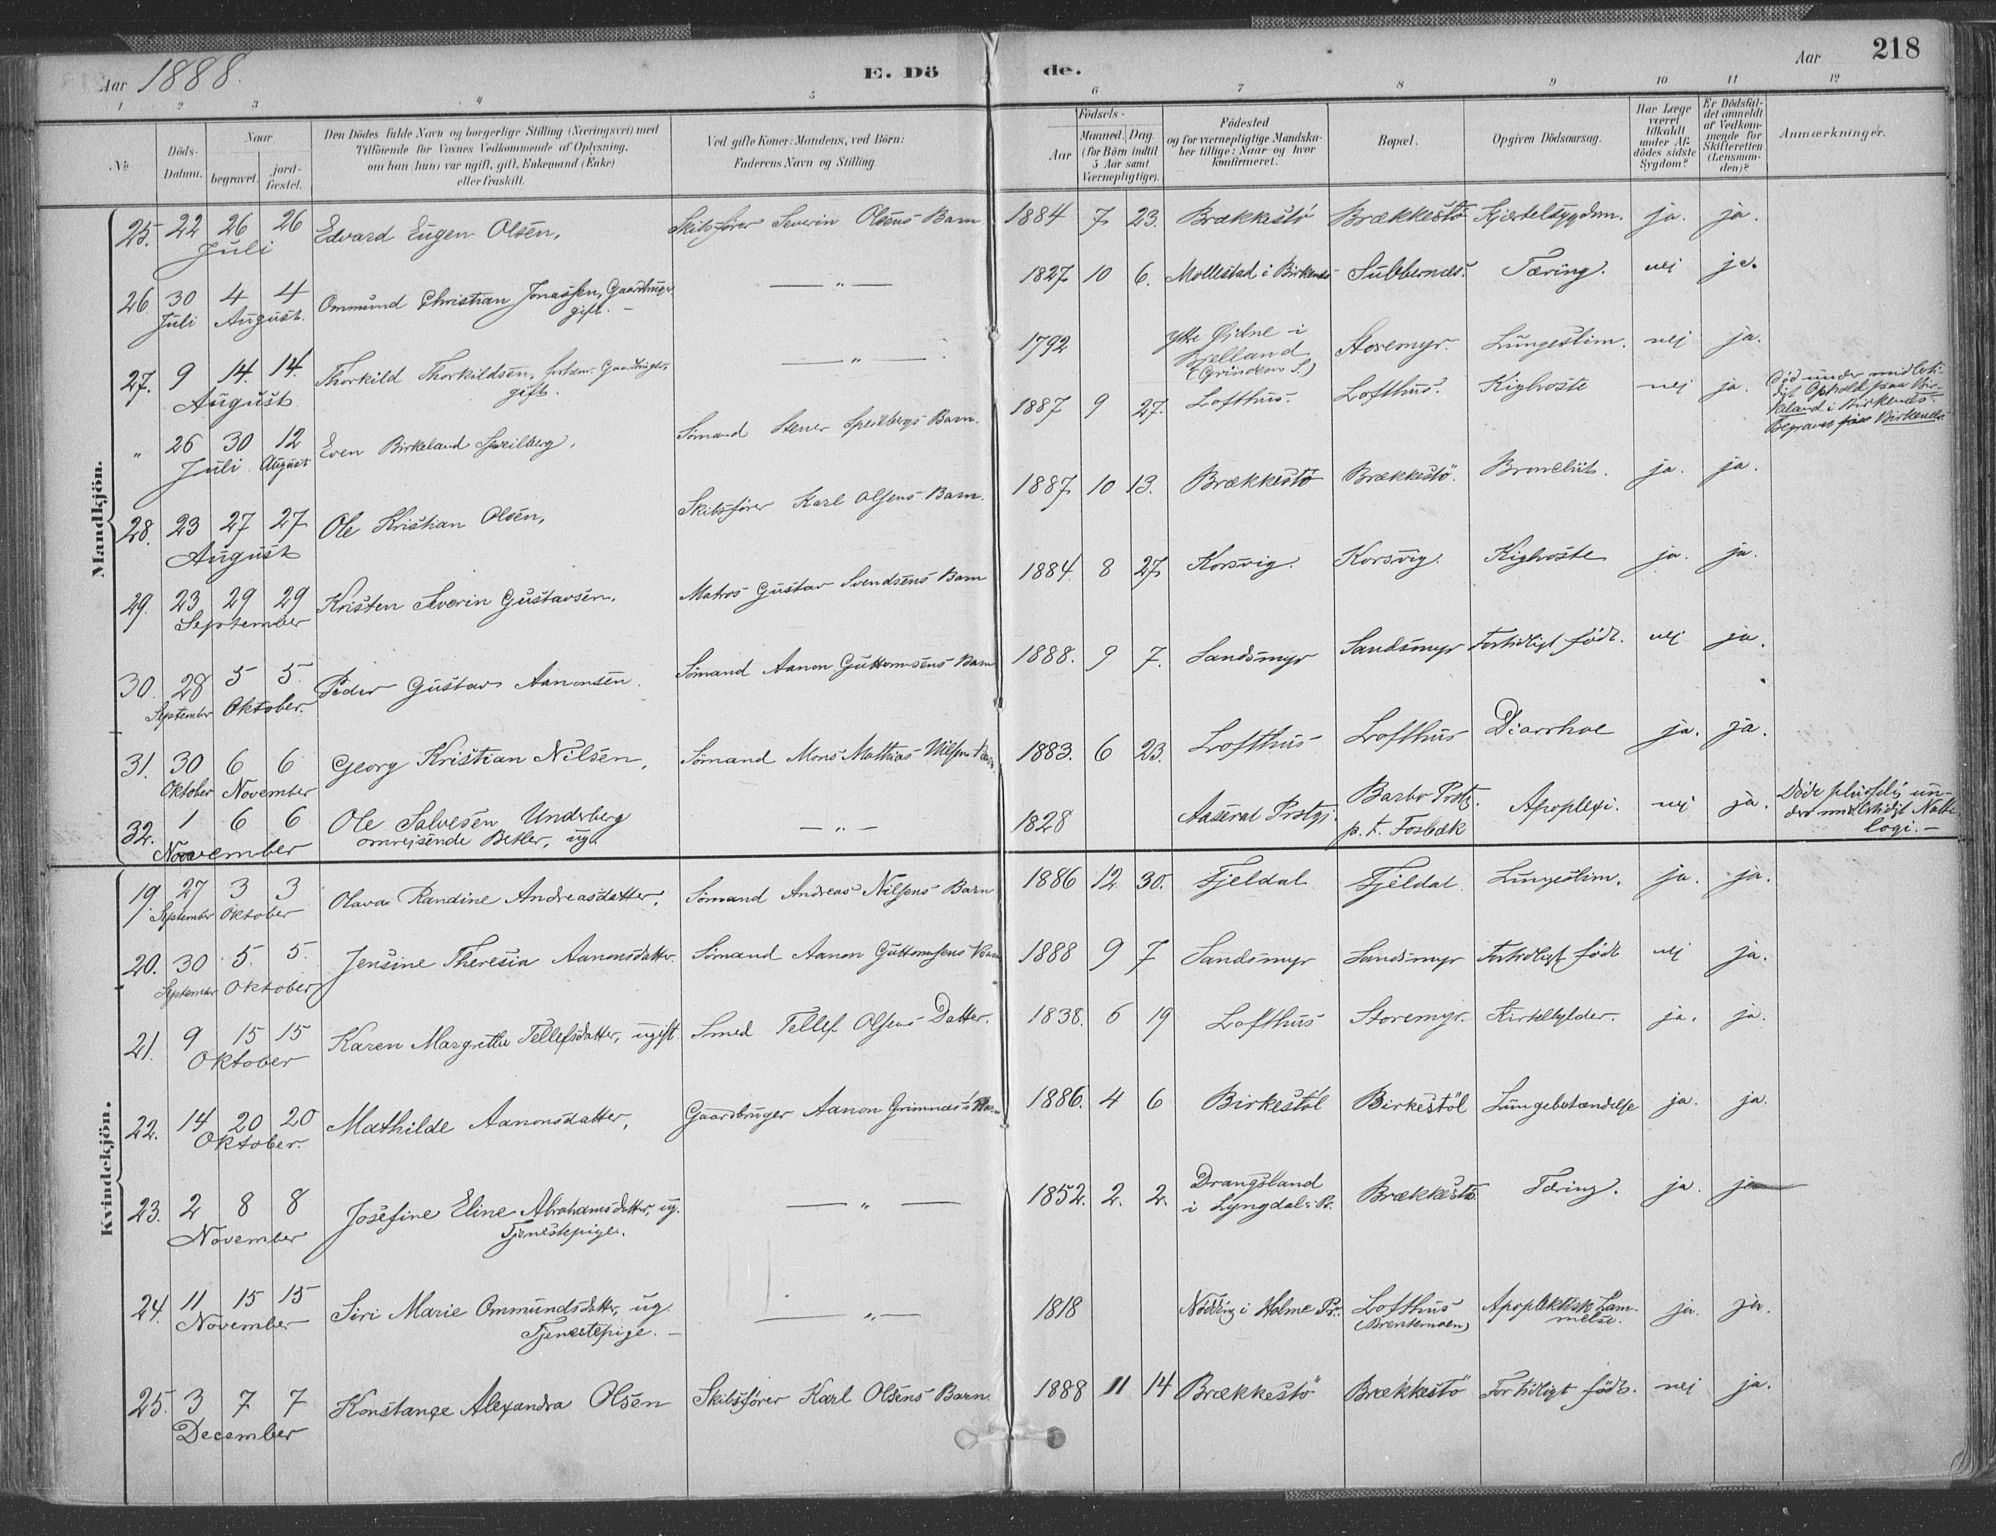 Aar 1888. E. Döde. Aar 218
1 2 3 4 5 6 7 8 9 10 11 12
No
Döds-Datum.
Naar begravet. jordfæstet.
Den Dödes fulde Navn og borgerlige Stilling (Næringsvei) med
Tilföiende for Voxnes Vedkommende af Oplysning,
om han (hun) var ugift, gift, Enkemand (Enke)
eller fraskilt.
Ved gifte Koner: Mandens, ved Börn:
Faderens Navn og Stilling.
Födsels-
Aar Maaned. Dag.
(for Börn indtil
5 Aar samt
Værnepligtige).
Födested
og for værnepligtige Mandska-
ber tillige: Naar og hvor
konfirmeret.
Bopæl.
Opgiven Dödsaarsag.
Har Læge
været
tilkaldt
under Af-
dödes sidste
Sygdom?
Er Dödsfal-
det anmeldt
af Vedkom-
mende for
Skifteretten
(Lensman-
den)?
Anmærkninger.
Mandkjön.
25. 22 26 26 Edvard Eugen Olsen, Skibsfører Severin Olsens Barn 1884 7 23. Brækkestö Brækkestö Kjertelsygdom. ja. ja.
Juli
26 30 4 4 Ommund Christian Jonassen, Gaardbruger — " — 1827 10 6. Mollestad i Birkenes Dubbernæs. Tæring. nei ja.
Juli August. gift. —
27. 9 14. 14. Thorkild Thorkildsen, Gaardbruger, — " — 1792 Ytre Øidne i Storemyr. Lungeslim. nei ja.
August gift. Bjelland
" 26 30 12 Even Birkeland Speilberg, Sømand Stener Speilbergs Barn. 1887 9 27. Lofthus. Lofthus. Kighoste nei ja. Død under midlerti-
Juli August digt Ophold paa Bir-
keland i Birkenes.
Begravet paa Birkenes.
28. 23 27 27 Ole Kristian Olsen, Skibsfører Karl Olsens Barn. 1887 10 13. Brækkestö Brækkestö. ja. ja.
August
29. 23 29 29 Kristen Severin Gustavsen. Matros Gustav Svendsens Barn 1884. 8 27 Korsvig. Korsvig. Kighoste ja. ja.
September
30. 28 5 5. Peder Gustav Aanonsen. Sømand Aanon Guttormsens Barn 1888. 9 7. Sandsmyr Sandsmyr Fortidligt født. nei ja.
September Oktober.
31. 30 6 6 Georg Kristian Nilsen, Sømand Mons Mathias Nilsens Barn 1883. 6 23. Lofthus Lofthus Diarrhoe ja. ja.
Oktober November
32. 1 6 6 Ole Salvesen Underberg — " — 1828 Aaseral Prstgj. Barbo Prstgj. Apoplexi. nei ja. Døde pludselig un-
November omreisende Betler, ug. p. t. Fosbæk der midlertidigt Natte-
logi. —
Kvindekjön.
19. 27 3 3 Olava Randine Andreasdatter, Sømand Andreas Nilsens Barn 1886 12 30. Fjeldal Fjeldal Lungeslim. ja. ja.
September Oktober
20. 30 5. 5. Jensine Theresia Aanonsdatter. Sømand Aanon Guttormsens Barn 1888 9 7 Sandsmyr Sandsmyr Fortidligt født nei ja.
September Oktober
21. 9 15 15 Karen Margrethe Tellefsdatter, ugift Smed Tellef Olsens Datter. 1838. 6 19 Lofthus Storemyr. Kirtelbylder. ja. ja.
Oktober
22. 14 20 20 Mathilde Aanonsdatter, Gaardbruger Aanon Grimnæs's Barn 1886. 4 6 Birkestöl Birkestöl Lungebetændelse ja. ja.
Oktober.
23. 2 8 8 Josefine Eline Abrahamsdatter, ug. — " — 1852. 2. 2. Drangsland Brækkestö. Tæring. ja. ja
November Tjenestepige. i Lyngdal Pr.
24. 11 15 15 Siri Marie Ommundsdatter, ug. — " — 1818 Nödding i Holme Pr. Lofthus Apoplektisk Lam- ja. ja.
November Tjenestepige. — (Brentemoen) melse.
25. 3 7 7 Konstanse Alexandra Olsen Skibsfører Karl Olsens Barn. 1888 11 14 Brækkestö Brækkestö Fortidligt født. nei ja.
December